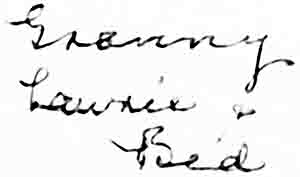 Granny
Lawrie &
Bid